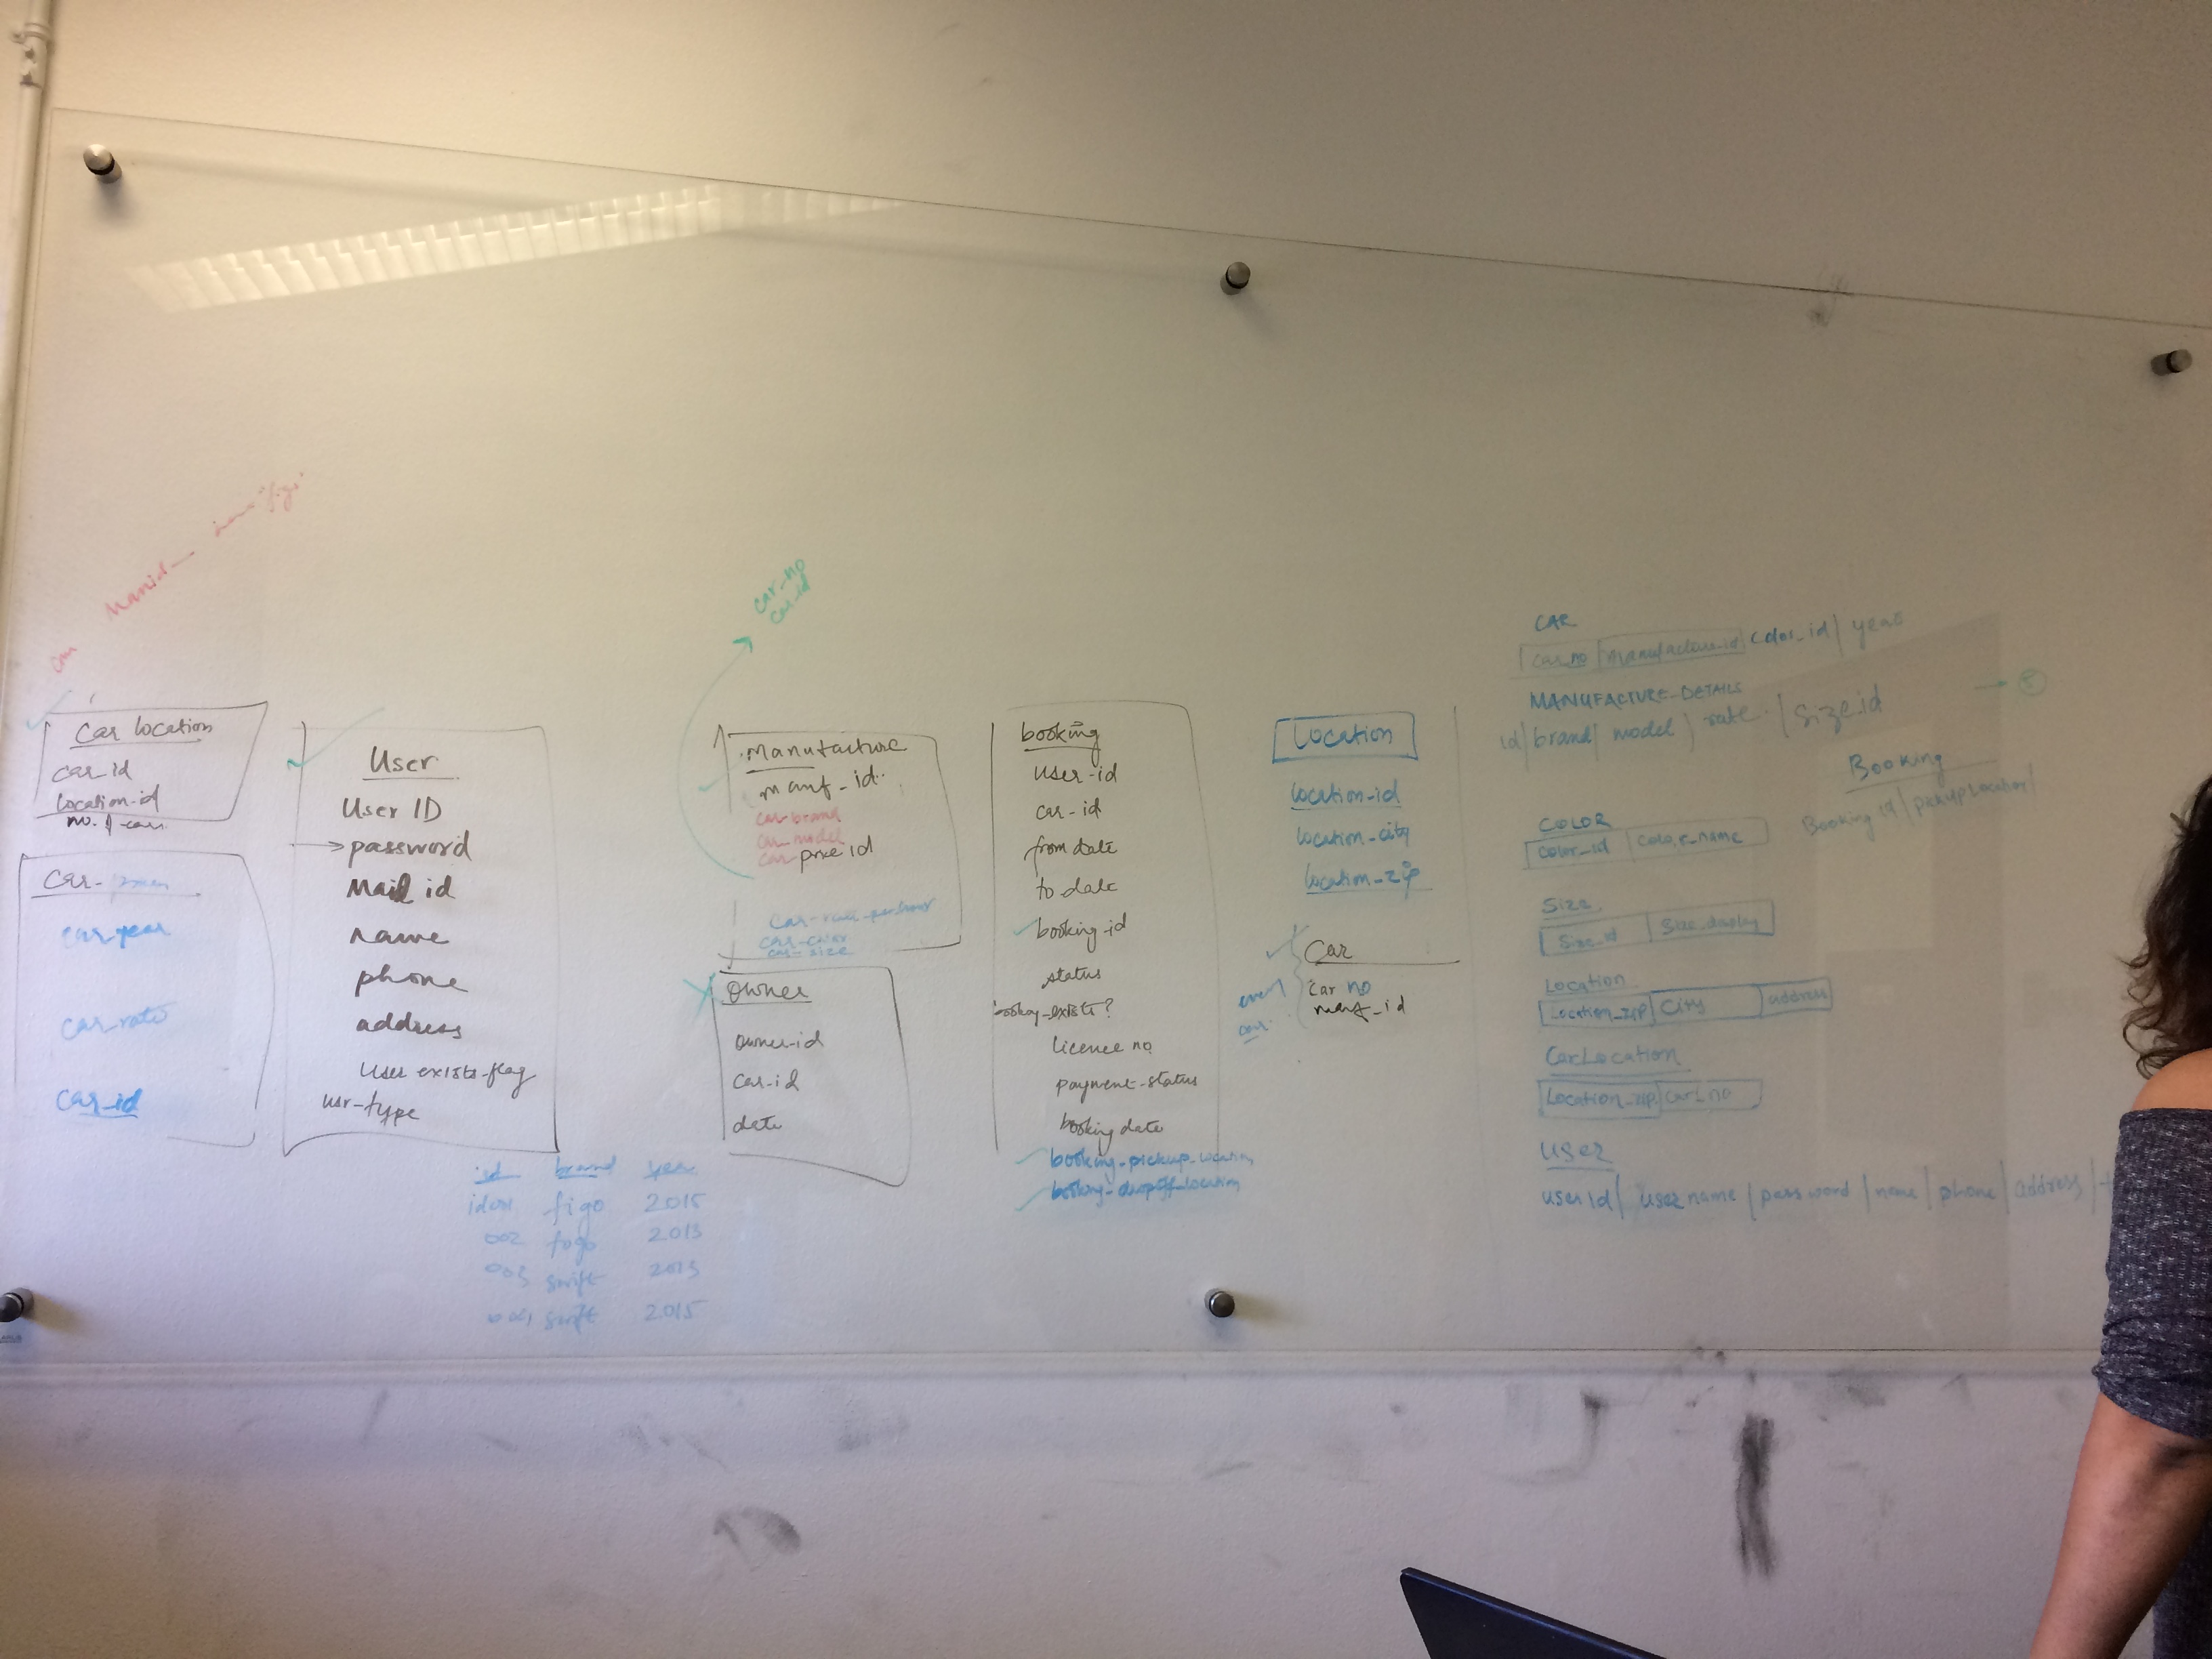 car
Manid
car_no
car_id
Car location
car_id
location-id
no. of cars
Car-
car_year
car_rate
car_id
User
User ID
password
Mail id
name
phone
address
User exists-flag
usr-type
id brand year
id001 figo 2015
002 figo 2013
003 swift 2013
004 swift 2015
Manufacture
manf_id
car_brand
car_model
car price id
car-rate-per hour
car-color
car-size
Owner
owner-id
car-id
date
booking
user-id
car-id
from date
to date
booking-id
status
booking-exists?
licence no
payment-status
booking date
booking-pickup-location
booking-dropoff-location
Location
location-id
location-city
location-zip
Car
car no
manf_id
CAR
car_no | Manufacture_id | color_id | year
MANUFACTURE_DETAILS
id | brand | model | rate | size_id
Booking
Booking id | pickup location |
COLOR
Color_id | Color_name
Size
Size_id | Size_display
Location
Location_zip | City | address
CarLocation
Location_zip | car_no
User
user id | user name | password | name | phone | address |